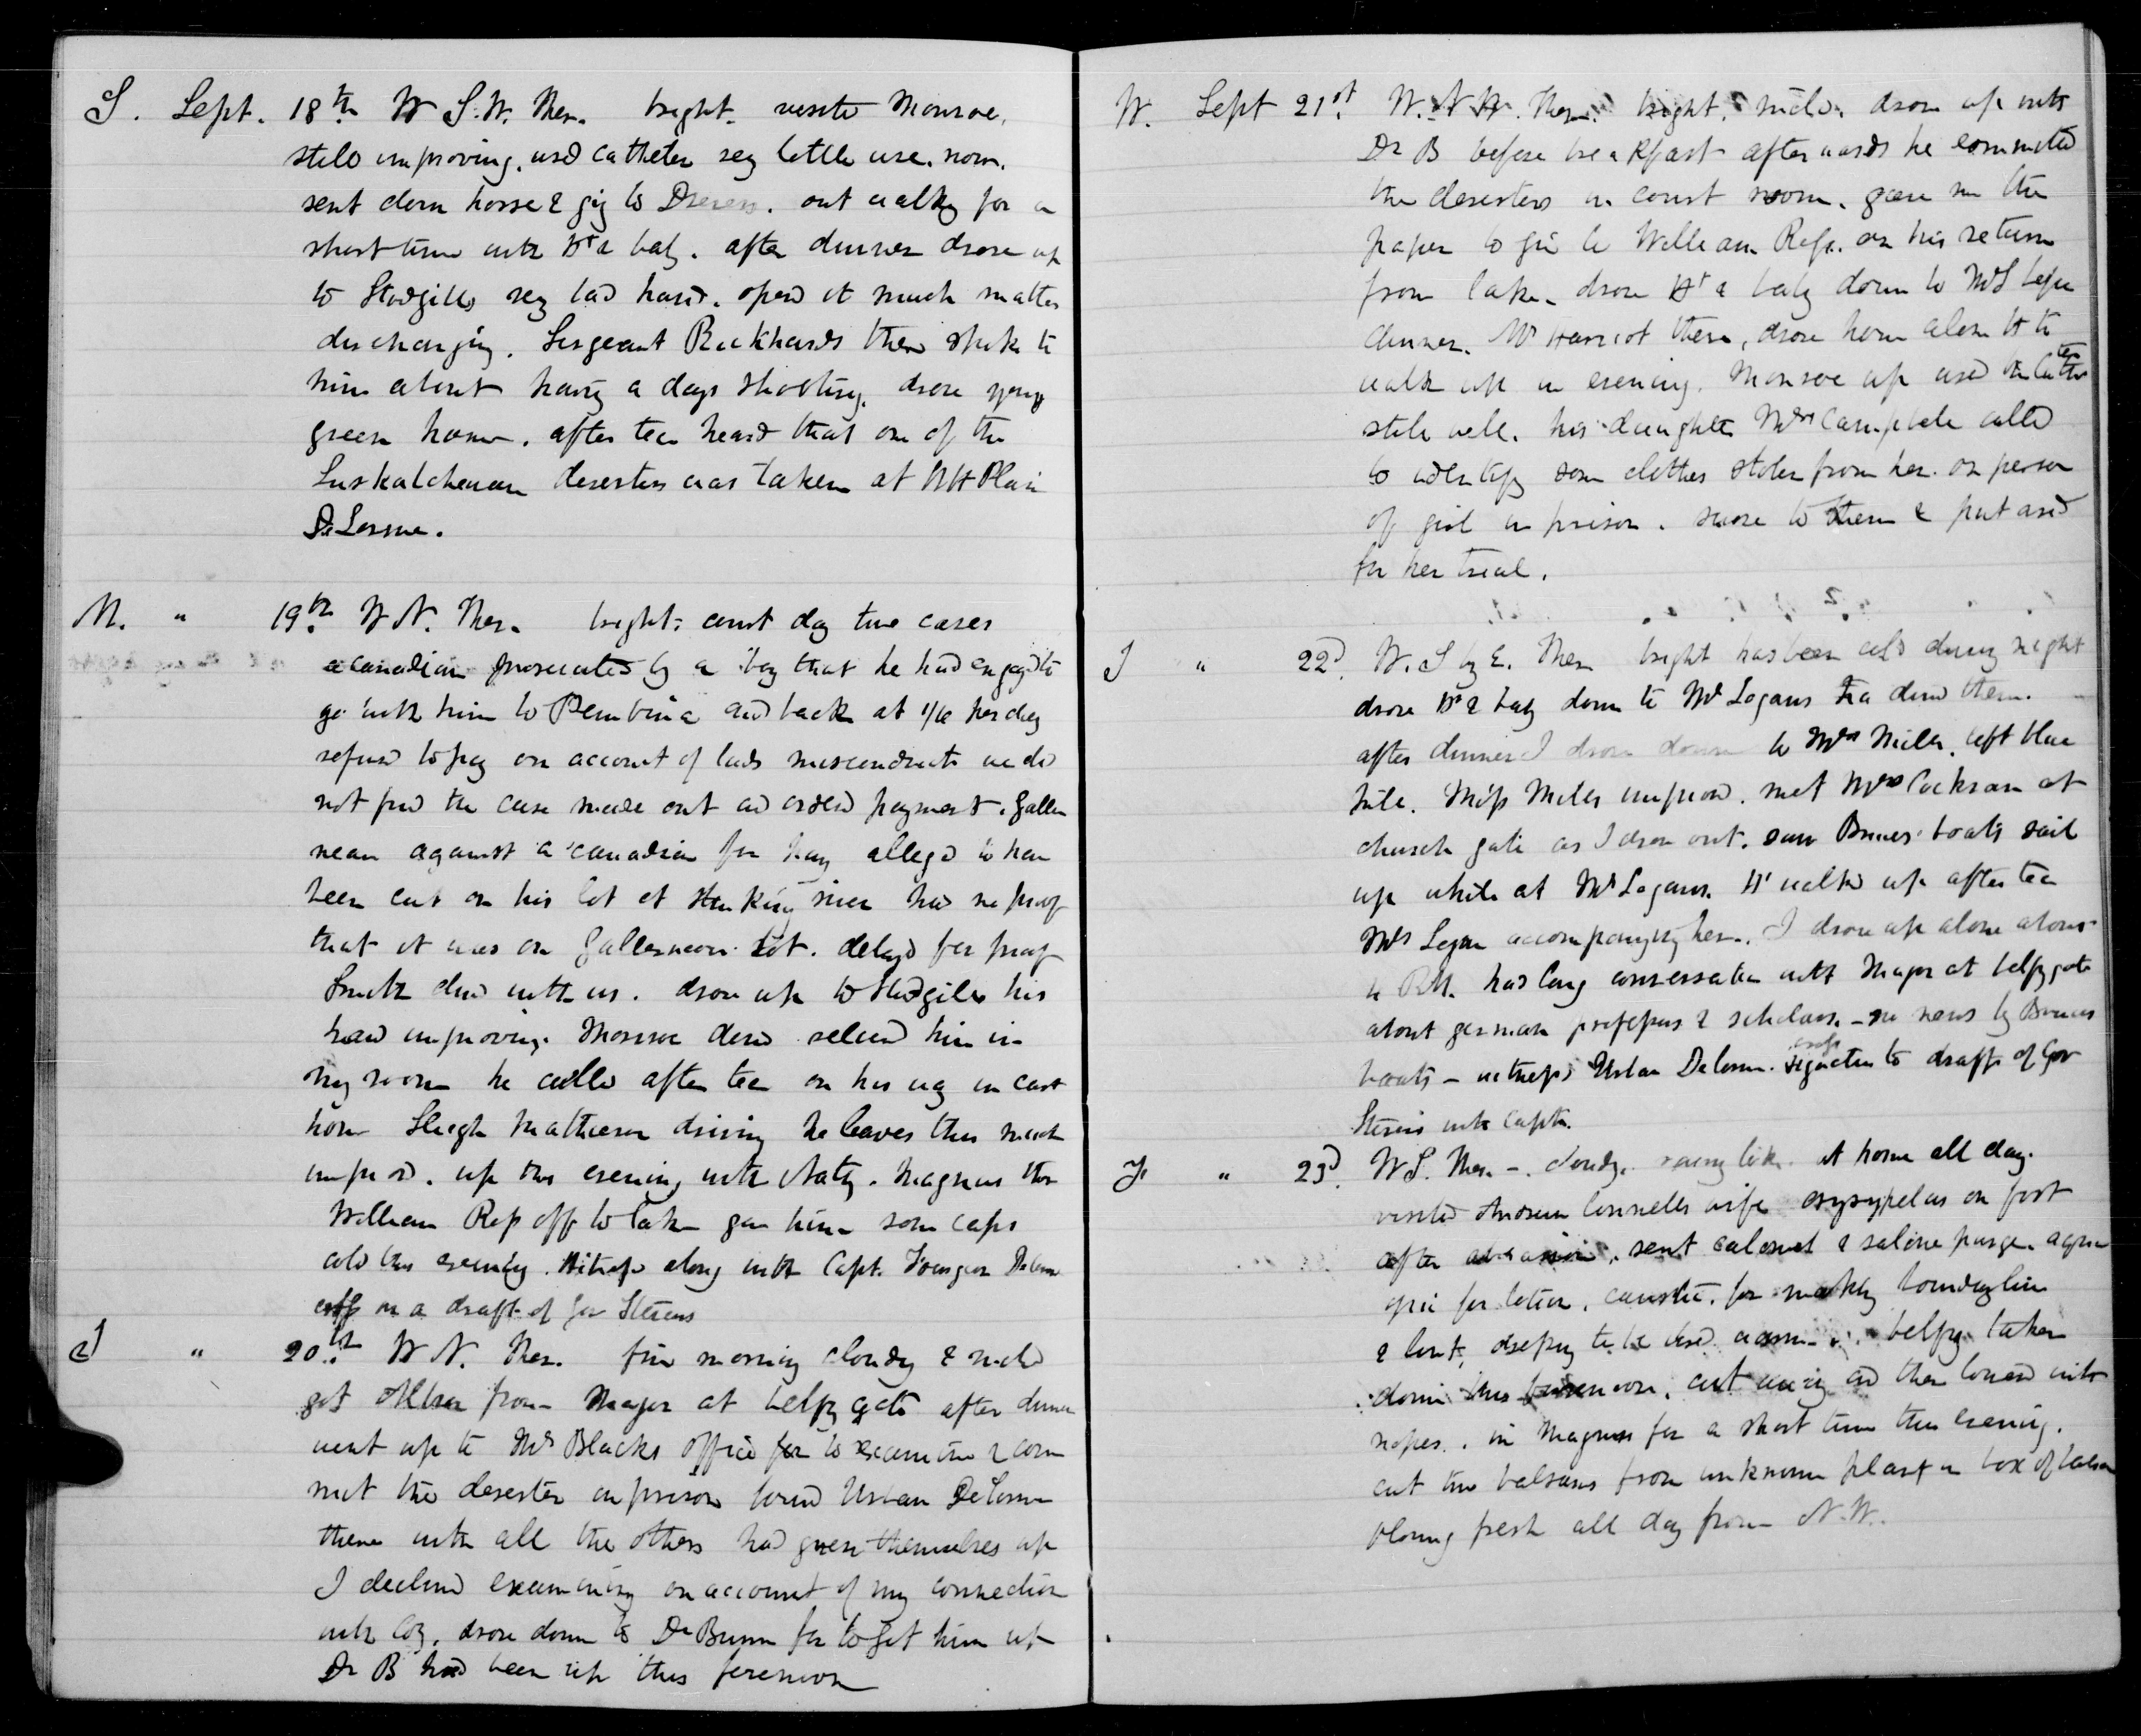 S. Sept. 18th W S.W. Ther. bright. visite Monroe,
still improving. used catheter very little use. now.
sent down horse & gig to . out walkg for a
short time with Ht & baby. after dinner drove up
to Stodgills very bad hand. opend it much matter
discharging. Sergeant Rickhards there spoke to
him about havig a days shooting. drove young
green home. after tea heard that one of the
Saskatchewan deserters was taken at WH Plain
DeLorme.
M. " 19th W N. Ther. bright. court day two cases
a canadian prosecuted by a boy that he had engagd to
go with him to Pembina and back at 1/6 per day
refused to pay on account of lads misconduct we did
not find the case made out and orderd payment. Galler
neau against a canadian for hay allegd to have
been cut on his lot at Stinking river had no proof
that it was on Gallerneau lot. delayd for proof
Smith dind with us. drove up to Stodgills his
hand improving. Monroe down relievd him in
my room he called after tea on his way in cart
home Hugh Matheson driving he leaves this much
improvd. up this evening with Naty. Magnus thr
William Ross off to lake gave him some caps
cold this evening. Witness along with Capt. Delorme
on a draft of Gov Stevens
T " 20th W N. Ther. fine morning cloudy & mild
got from Major at belfry gate after dinner
went up to Mr Blacks office for to examine & com
mit the deserter in prison found Urban DeLorme
there with all the others had given themselves up
I declind examining on account of my connection
with Coy. drove down to Dr Bunn for to get him up
Dr B had been up this forenoon
W. Sept 21st. W. N W. Ther. bright. mild. drove up with
Dr B before breakfast afterwards he committed
the deserters in court room. gave me the
paper to give to William Ross. on his return
from lake. drove Ht & baby down to Mr L before
dinner. Mr Harriot there, drove home alone Ht to
walk up in evening. Monroe up used the catheter
still well. his daughter Mrs Campbele called
to identify some clothes stolen from her. on person
of girl in prison. swore to them & put and
for her trial.
T " 22d. W. S by E. Ther bright has been cold during night
drove Ht & baby down to Mr Logans dind there.
after dinner I drove down to Mrs Mills. left blue
. Miss Mills improvd. met Mrs Cockran at
church gate as I drove out. saw Bruces boats sail
up while at Mr Logans. Ht walkd up after tea
Mrs Logan accompanying her. I drove up alone
had long conversation with Major at belfry gate
about german professors & scholars. - no news by Bruces
boats - witness Urban Delorme. signature to draft of Gov
Stevens with Captn.
F " 23d. W S. Ther -. cloudy. rainy like. at home all day.
visited Connells wife erysypelas on foot
after abrasion. sent calomel & saline purge.
for lotion, caustic. for markg boundry line
& lint, to be used belfry taken
down this forenoon. cut away and then lowerd with
ropes. in Magnus for a short time this evening.
cut two balsams from unknown plant in box of balsam
blowing fresh all day from N.W.